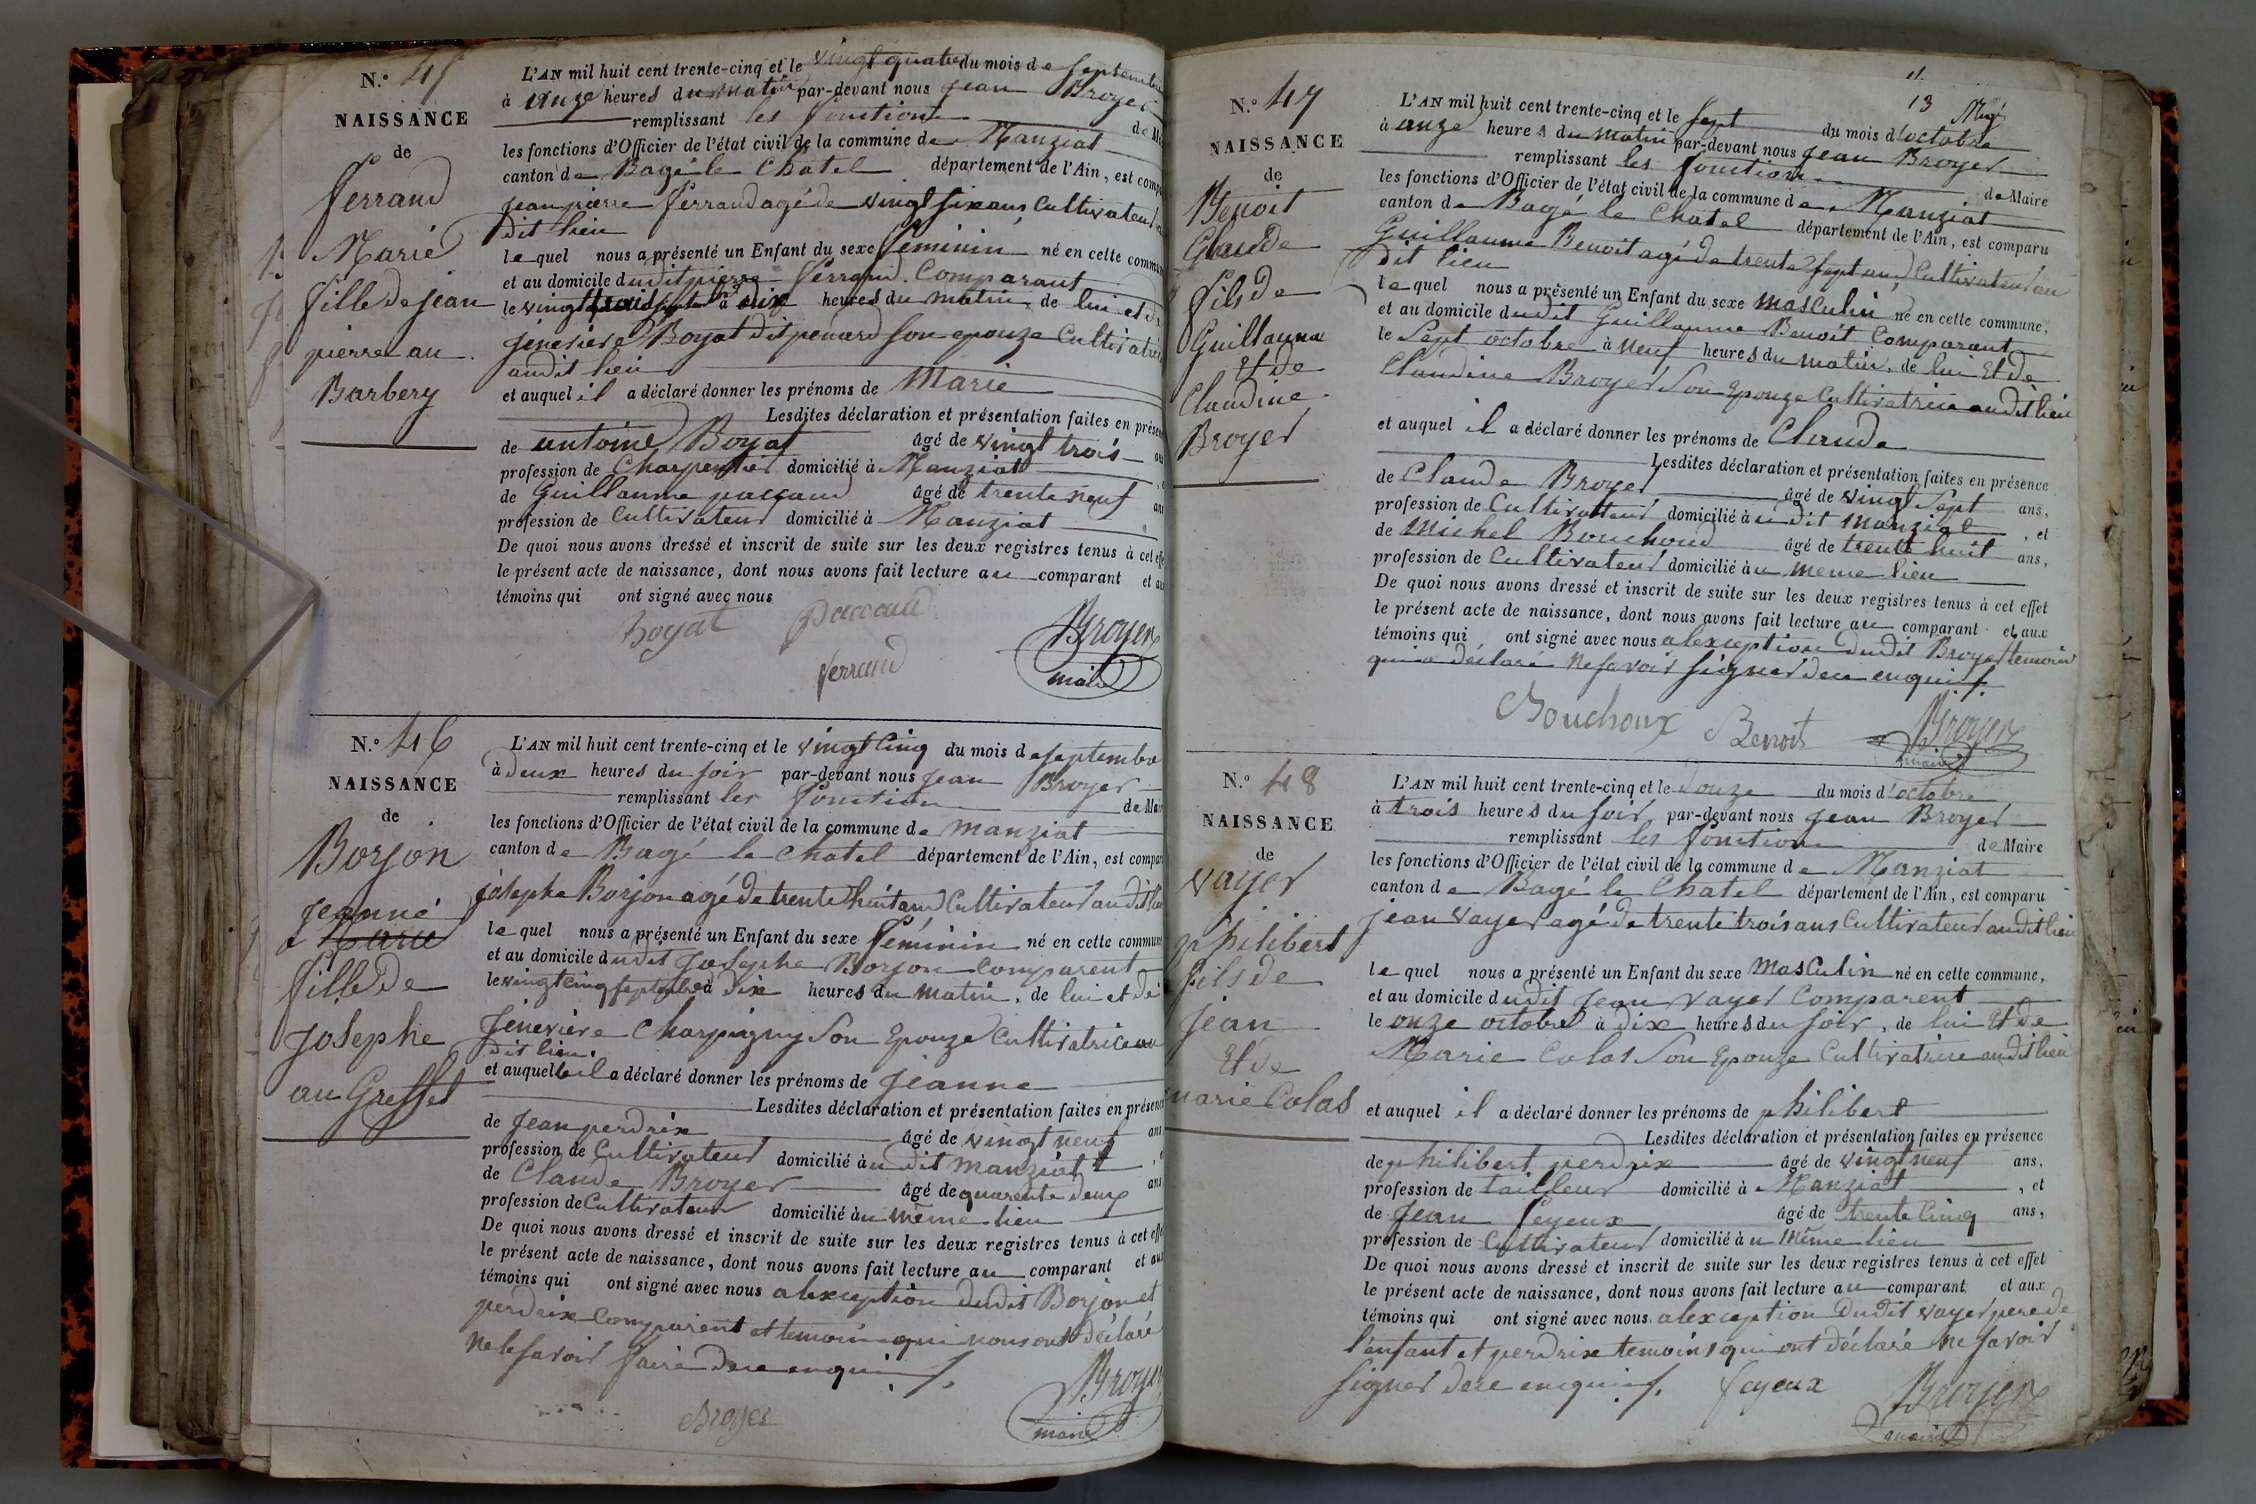 N.º 45
NAISSANCE
de
Ferrand
Marie
fille de jean
pierre au
Barbery
L'AN mil huit cent trente-cinq et le vingt quatre du mois de septembre
à onze heures du matin par-devant nous jean Broyer
remplissant les fonction de Mai
les fonctions d'Officier de l'état civil de la commune de Manziat
canton de Bagé le Chatel département de l'Ain, est compa
jean pierre Ferrand agé de vingt six ans Cultivateur au
dit lieu
lequel nous a présenté un Enfant du sexe féminin né en cette commun
et au domicile dudit pierre Ferrand Comparant
le vingt trois septembre à dix heures du matin de lui et de
jeneviève Boyat dit penard son epouze Cultivatrice
audit lieu
et auquel il a déclaré donner les prénoms de Marie
Lesdites déclaration et présentation faites en présence
de antoine Boyat âgé de vingt trois ans
profession de Charpentier domicilié à Manziat
de Guillaume paccaud âgé de trente neuf ans
profession de Cultivateur domicilié à Manziat
De quoi nous avons dressé et inscrit de suite sur les deux registres tenus à cet effe
le présent acte de naissance, dont nous avons fait lecture au comparant et au
témoins qui ont signé avec nous
Boyat Paccaud Broyer
Ferrand maire
N.º 46
NAISSANCE
de
Borjon
Jeanne
Marie
fille de
Josephe
au Greffet
L'AN mil huit cent trente-cinq et le vingt cinq du mois de septembre
à deux heures du soir par-devant nous jean Broyer
remplissant les fonction de Mair
les fonctions d'Officier de l'état civil de la commune de Manziat
canton de Bagé le chatel département de l'Ain, est compar
josephe Borjon agé de trente huit ans Cultivateur audit lieu
lequel nous a présenté un Enfant du sexe féminin né en cette commune
et au domicile dudit Josephe Borjon comparent
le vingt cinq septembre à dix heures du matin, de lui et de
Jeneviève Charpigny Son Epouze Cultivatrice au
dit lieu
et auquel il a déclaré donner les prénoms de Jeanne
Lesdites déclaration et présentation faites en présence
de Jean perdrix âgé de vingt neuf ans
profession de Cultivateur domicilié à u dit manziat
de Claude Broyer âgé de quarente deux ans
profession de Cultivateur domicilié à u même lieu
De quoi nous avons dressé et inscrit de suite sur les deux registres tenus à cet effe
le présent acte de naissance, dont nous avons fait lecture au comparant et aux
témoins qui ont signé avec nous alexception dudit Borjon et
perdrix comparent et temoin qui nous ont déclaré
ne le savoir faire de ce enquis.
Broyer
Broyer maire
11.
13
N.º 47
NAISSANCE
de
Benoit
Claude
fils de
Guillaume
Et de
Claudine
Broyer
L'AN mil huit cent trente-cinq et le sept du mois d'octobre
à onze heures du matin par-devant nous jean Broyer
remplissant les fonction de Maire
les fonctions d'Officier de l'état civil de la commune de Manziat
canton de Bagé le Chatel département de l'Ain, est comparu
Guillaume Benoit agé de trente sept ans Cultivateur au
dit lieu
lequel nous a présenté un Enfant du sexe masculin né en cette commune,
et au domicile dudit Guillaume Benoit Comparant
le Sept octobre à neuf heures du matin, de lui Et de
Claudine Broyer Son Epouze Cultivatrice audit lieu
et auquel il a déclaré donner les prénoms de Claude
Lesdites déclaration et présentation faites en présence
de Claude Broyer âgé de vingt Sept ans,
profession de Cultivateur domicilié à u dit manziat, et
de Michel Bouchoud âgé de trente huit ans,
profession de Cultivateur domicilié à u meme lieu
De quoi nous avons dressé et inscrit de suite sur les deux registres tenus à cet effet
le présent acte de naissance, dont nous avons fait lecture au comparant et aux
témoins qui ont signé avec nous alexception dudit Broyer temoin
qui a déclaré ne savoir signer de ce enquis.
Bouchoux Benoit Broyer
maire
N.º 48
NAISSANCE
de
vayer
philibert
fils de
jean
Et de
marie Colas
L'AN mil huit cent trente-cinq et le Douze du mois d'octobre
à trois heures du soir par-devant nous jean Broyer
remplissant les fonction de Maire
les fonctions d'Officier de l'état civil de la commune de Manziat
canton de Bagé le Chatel département de l'Ain, est comparu
jean vayer agé de trente trois ans Cultivateur audit lieu
lequel nous a présenté un Enfant du sexe Masculin né en cette commune,
et au domicile dudit jean vayer Comparent
le onze octobre à dix heures du soir, de lui Et de
Marie Colas Son Epouze Cultivatrice audit lieu
et auquel il a déclaré donner les prénoms de philibert
Lesdites déclaration et présentation faites en présence
de philibert perdrix âgé de vingt neuf ans,
profession de tailleur domicilié à Manziat, et
de Jean feyeux âgé de trente Cinq ans,
profession de Cultivateur domicilié à u même lieu
De quoi nous avons dressé et inscrit de suite sur les deux registres tenus à cet effet
le présent acte de naissance, dont nous avons fait lecture au comparant et aux
témoins qui ont signé avec nous alexception Dudit vayer pere de
l'enfant et perdrix temoins qui ont déclaré ne savoir
signer de ce enquis. feyeux Broyer
maire